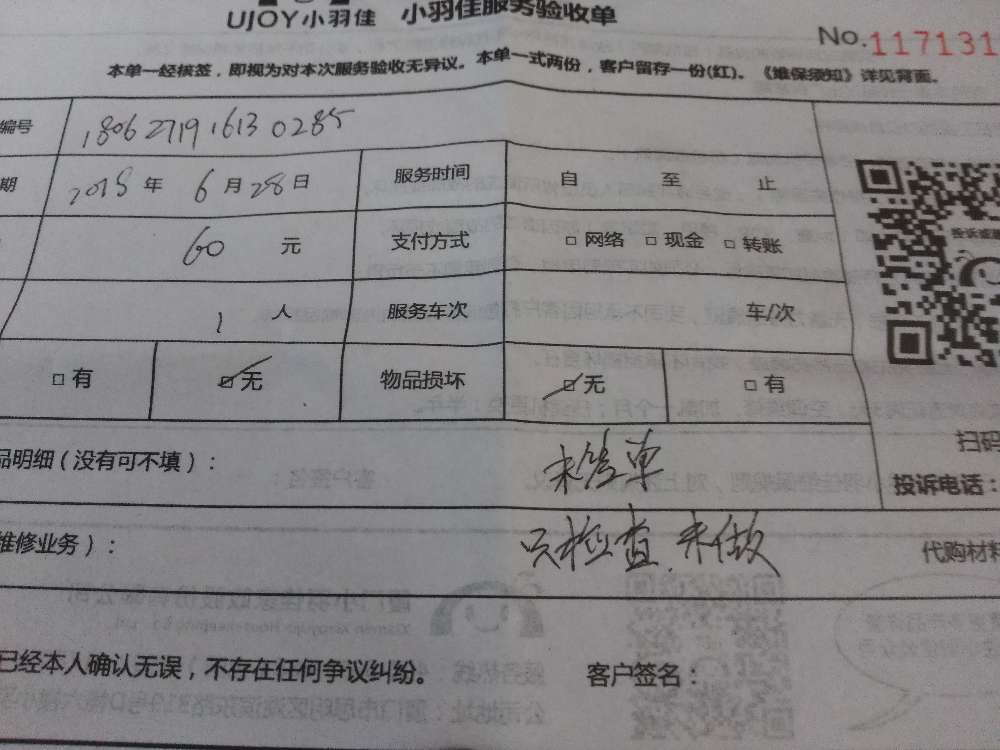 UJOY小羽佳 小羽佳服务验收单
No.117131
本单一经核签，即视为对本次服务验收无异议。本单一式两份，客户留存一份(红)。《维保须知》详见背面。
编号 180627191613 0285
期 2018 年 6 月 28 日 服务时间 自 至 止
60 元 支付方式 □ 网络 □ 现金 □ 转账
1 人 服务车次 车/次
□ 有 □ 无 物品损坏 □ 无 □ 有
品明细（没有可不填）： 未签单
扫码
投诉电话：
维修业务）： 只检查.未做
代购材料
已经本人确认无误，不存在任何争议纠纷。 客户签名：